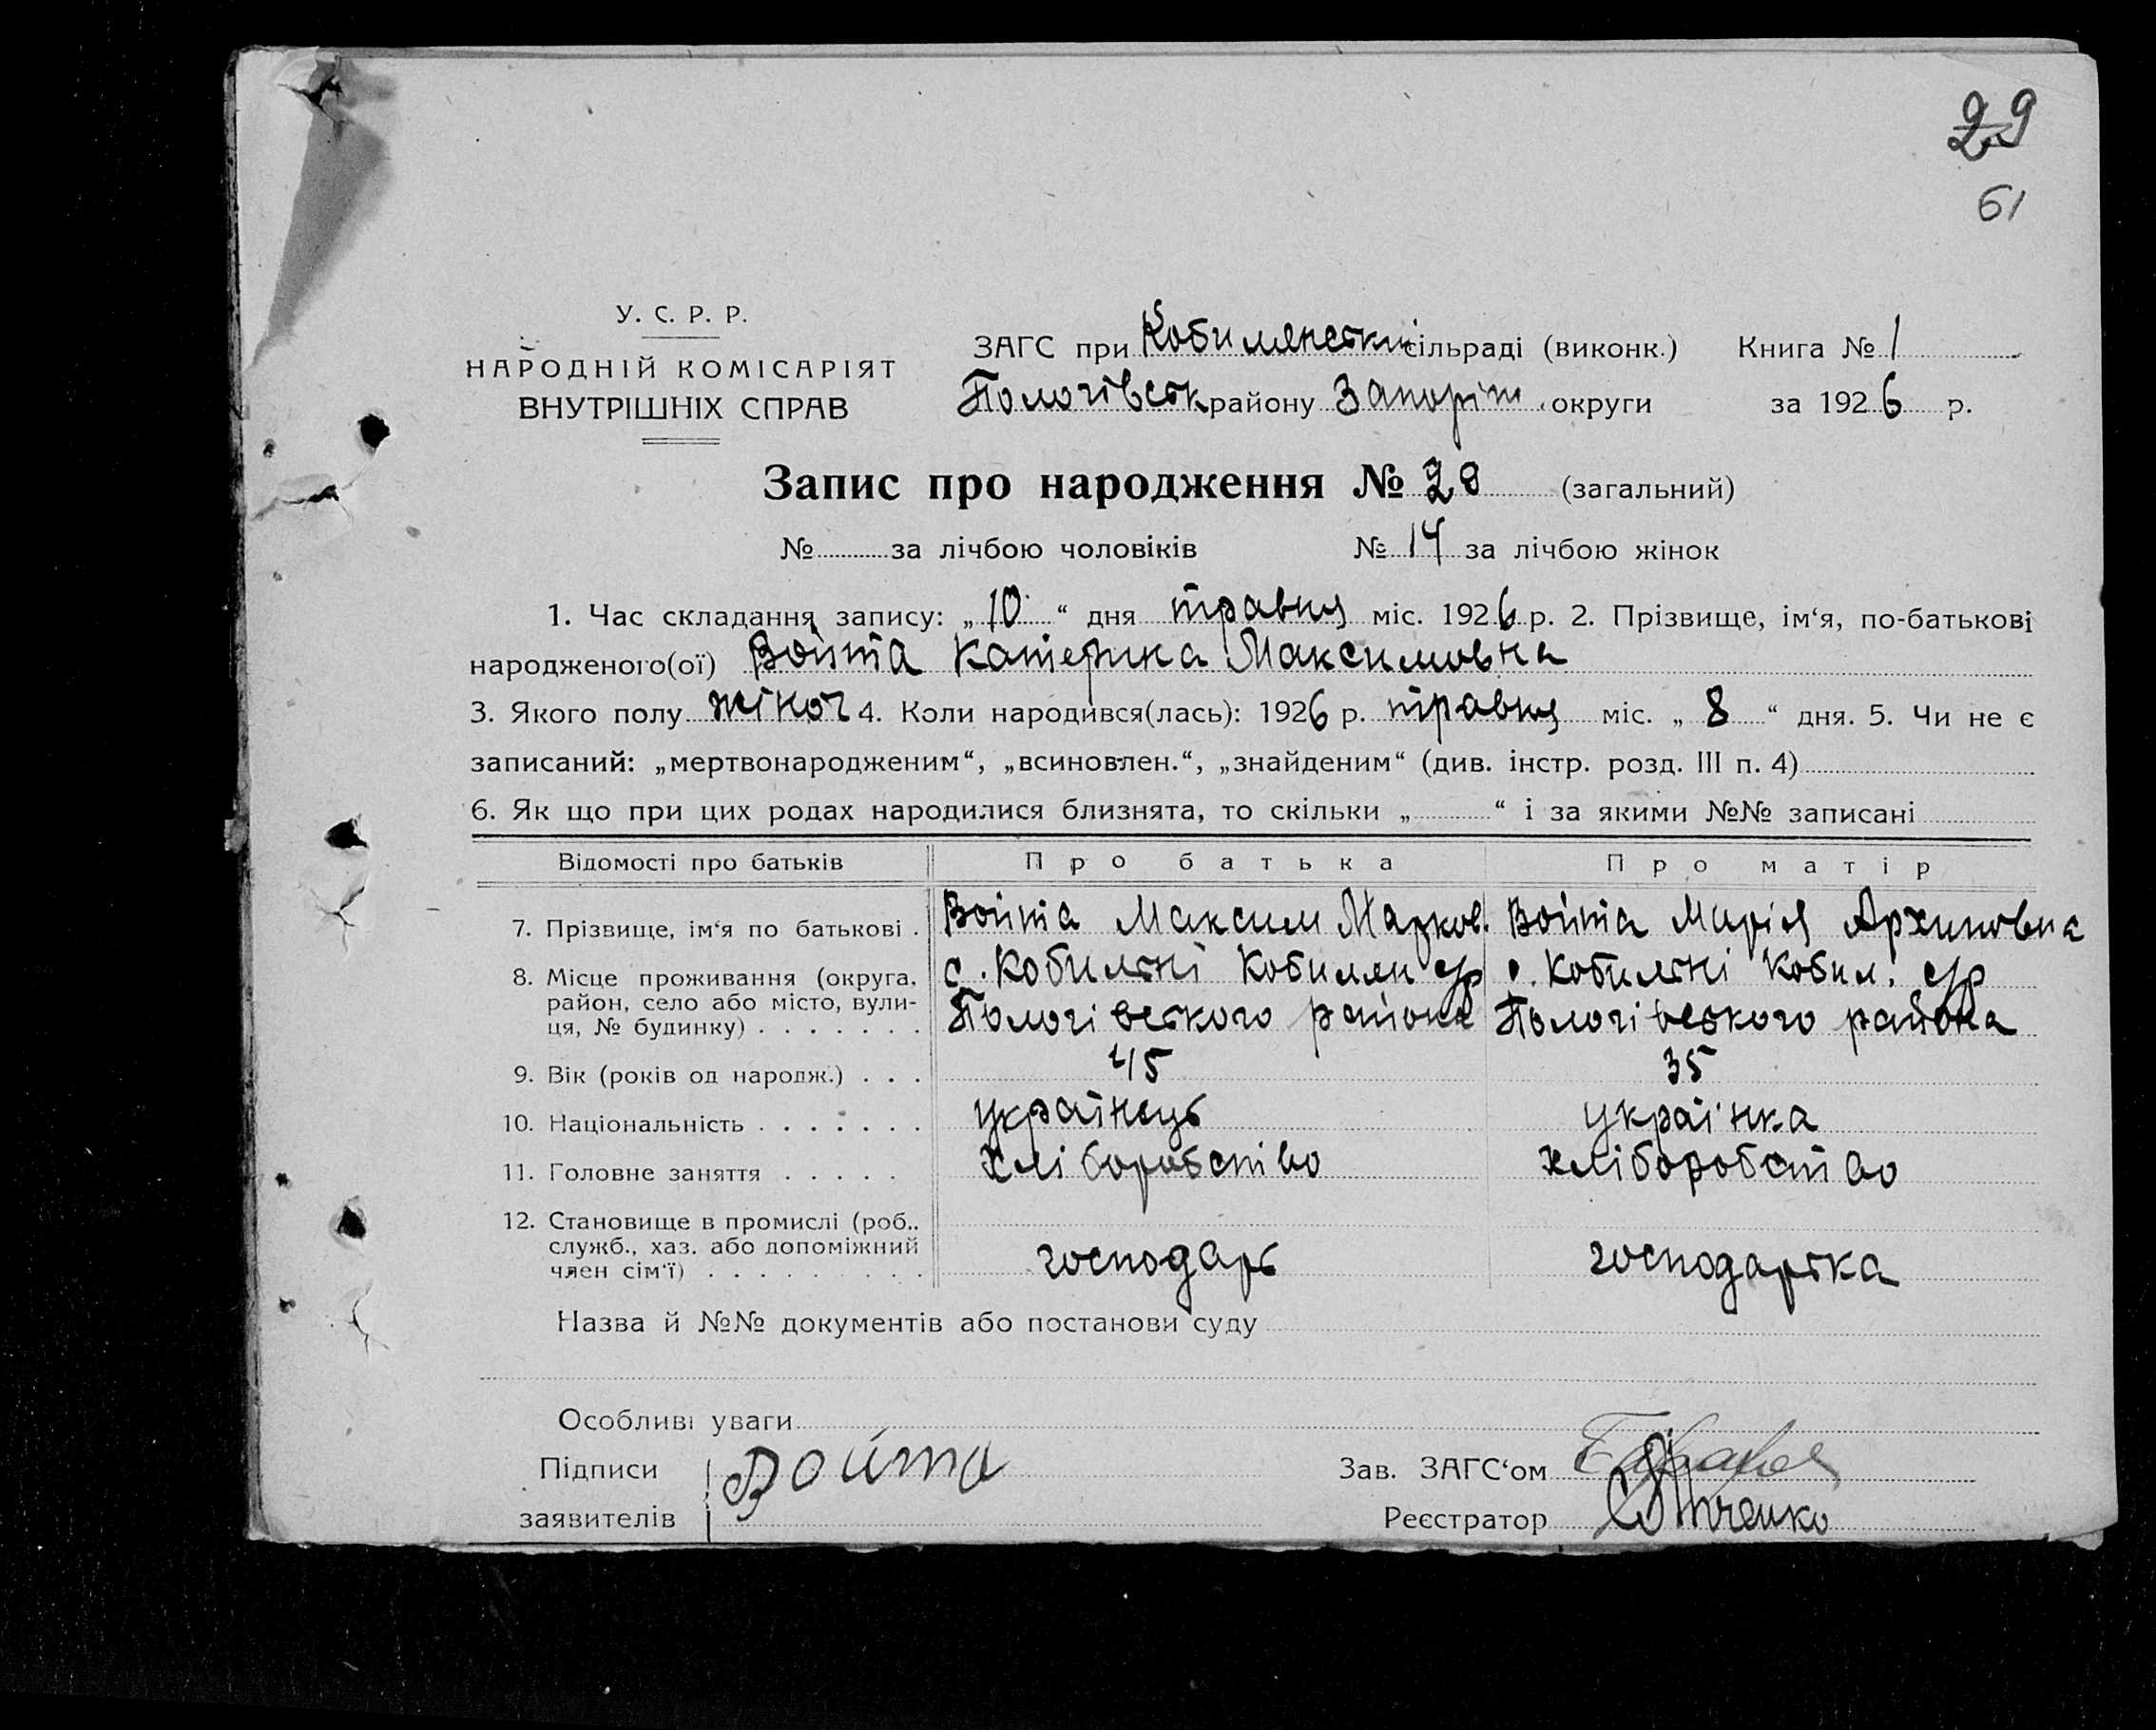 29
61
У. С. Р. Р.
НАРОДНІЙ КОМІСАРІЯТ
ВНУТРІШНІХ СПРАВ
ЗАГС при Кобилянський сільраді (виконк.) Книга № 1
Пологівськ району Запоріж. округи за 1926 р.
Запис про народження № 28 (загальний)
№ за лічбою чоловіків № 14 за лічбою жінок
1. Час складання запису: „10“ дня травня міс. 1926 р. 2. Прізвище, ім‘я, по-батькові
народженого(ої) Войта Катерина Максимовна
3. Якого полу жіноч 4. Коли народився(лась): 1926 р. травня міс. „8“ дня. 5. Чи не є
записаний: „мертвонародженим“, „всиновлен.“, „знайденим“ (див. інстр. розд. III п. 4)
6. Як що при цих родах народилися близнята, то скільки „ “ і за якими №№ записані
Відомості про батьків Про батька Про матір
7. Прізвище, ім‘я по батькові . Войта Максим Марков. Войта Марія Архиповна
8. Місце проживання (округа, с. Кобиляні Кобилян с/р с. Кобиляні Кобил. с/р
район, село або місто, вули-
ця, № будинку) . . . . . . . Пологівського района Пологівського района
9. Вік (років од народж.) . . . 45 35
10. Національність . . . . . . . українець українка
11. Головне заняття . . . . . хліборобство хліборобство
12. Становище в промислі (роб.,
служб., хаз. або допоміжний
член сім‘ї) . . . . . . . . . господарь господарька
Назва й №№ документів або постанови суду
Особливі уваги
Підписи Войта Зав. ЗАГС‘ом
заявителів Реєстратор